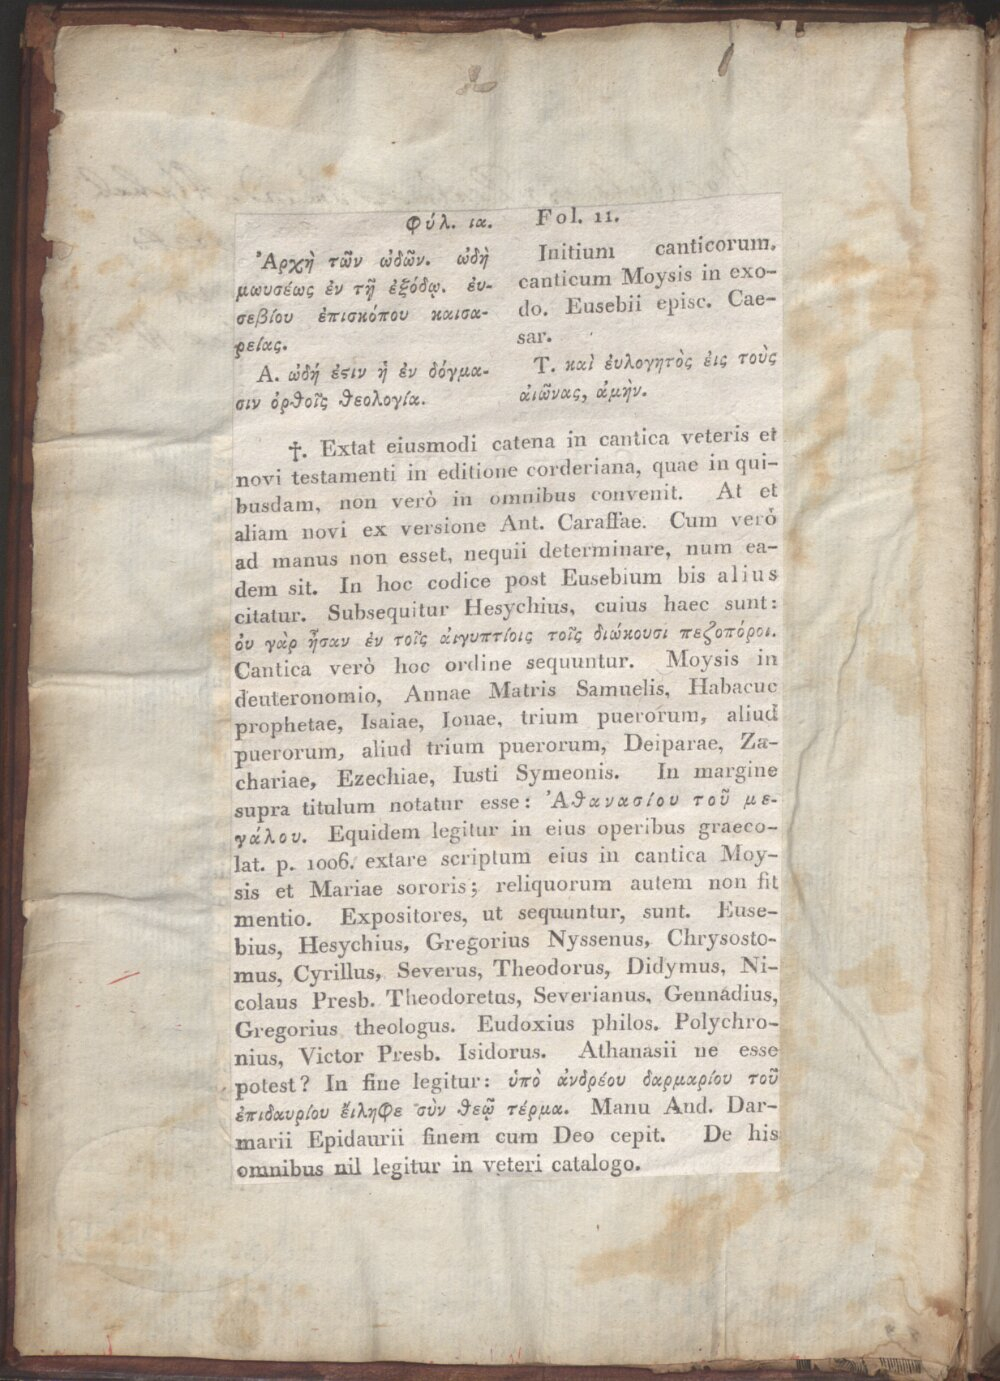 Φύλ. ια.
Ἀρχὴ τῶν ὠδῶν. ὠδὴ
μωυσέως ἐν τῇ ἐξόδῳ. ἐυ-
σεβίου ἐπισκόπου καισα-
ρείας.
Α. ὠδή ἐϛιν ἡ ἐν δόγμα-
σιν ὀρθοῖς θεολογία.
Fol. 11.
Initium canticorum.
canticum Moysis in exo-
do. Eusebii episc. Cae-
sar.
Τ. καὶ ἐυλογητὸς ἐις τοὺς
ἀιῶνας, ἀμὴν.
†. Extat eiusmodi catena in cantica veteris et
novi testamenti in editione corderiana, quae in qui-
busdam, non verò in omnibus convenit. At et
aliam novi ex versione Ant. Caraffae. Cum verò
ad manus non esset, nequii determinare, num ea-
dem sit. In hoc codice post Eusebium bis alius
citatur. Subsequitur Hesychius, cuius haec sunt:
ὀυ γὰρ ἦσαν ἐν τοῖς ἀιγυπτίοις τοῖς διώκουσι πεζοπόροι.
Cantica verò hoc ordine sequuntur. Moysis in
deuteronomio, Annae Matris Samuelis, Habacuc
prophetae, Isaiae, Ionae, trium puerorum, aliud
puerorum, aliud trium puerorum, Deiparae, Za-
chariae, Ezechiae, Iusti Symeonis. In margine
supra titulum notatur esse: Ἀθανασίου τοῦ με-
γάλου. Equidem legitur in eius operibus graeco-
lat. p. 1006. extare scriptum eius in cantica Moy-
sis et Mariae sororis; reliquorum autem non fit
mentio. Expositores, ut sequuntur, sunt. Euse-
bius, Hesychius, Gregorius Nyssenus, Chrysosto-
mus, Cyrillus, Severus, Theodorus, Didymus, Ni-
colaus Presb. Theodoretus, Severianus, Gennadius,
Gregorius theologus. Eudoxius philos. Polychro-
nius, Victor Presb. Isidorus. Athanasii ne esse
potest? In fine legitur: ὑπὸ ἀνδρέου δαρμαρίου τοῦ
ἐπιδαυρίου ἔιληφε σὺν θεῷ τέρμα. Manu And. Dar-
marii Epidaurii finem cum Deo cepit. De his
omnibus nil legitur in veteri catalogo.